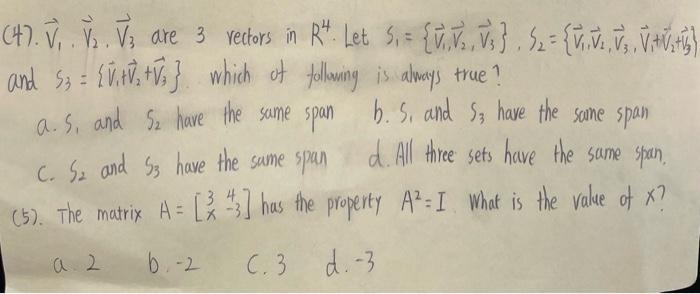 (4). V⃗₁, V⃗₂, V⃗₃ are 3 vectors in R⁴. Let S₁ = {V⃗₁, V⃗₂, V⃗₃}, S₂ = {V⃗₁, V⃗₂, V⃗₃, V⃗₁+V⃗₂+V⃗₃}
and S₃ = {V⃗₁+V⃗₂+V⃗₃} which of following is always true?
a. S₁ and S₂ have the same span b. S₁ and S₃ have the same span
C. S₂ and S₃ have the same span d. All three sets have the same span.
(5). The matrix A = [3 4 x -3] has the property A² = I. What is the value of x?
a. 2 b. -2 C. 3 d. -3